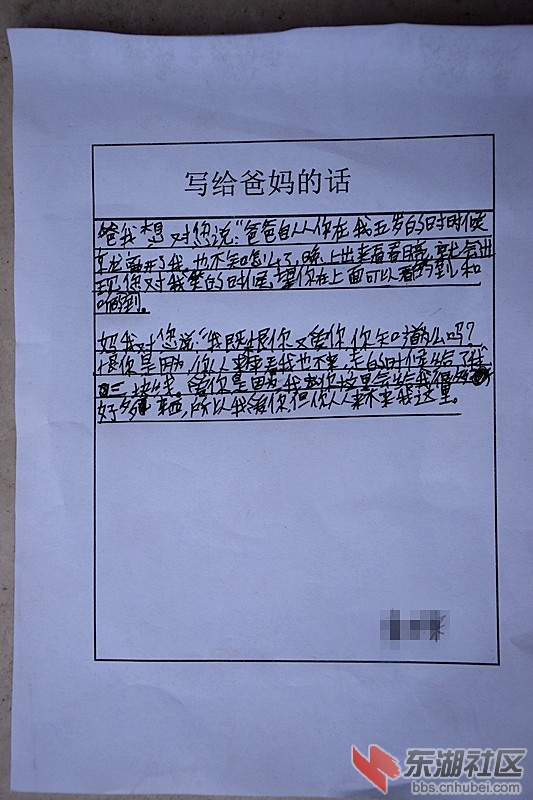 写给爸妈的话
爸我想对您说:“爸爸自从你在我五岁的时时候
就离开了我,也不知怎么了,晚上出来看看月亮,就会出
现您对我笑的时候,望你在上面可以看的到,和
听到。
妈我对您说:“我既恨你又爱你,你知道为什么吗?
恨你是因为,你从来看我也不来,走的时候给了我
二三块钱。爱你是因为我到你这里会给我很
好多东西,所以我爱你,但你从来不来我这里。
东湖社区
bbs.cnhubei.com